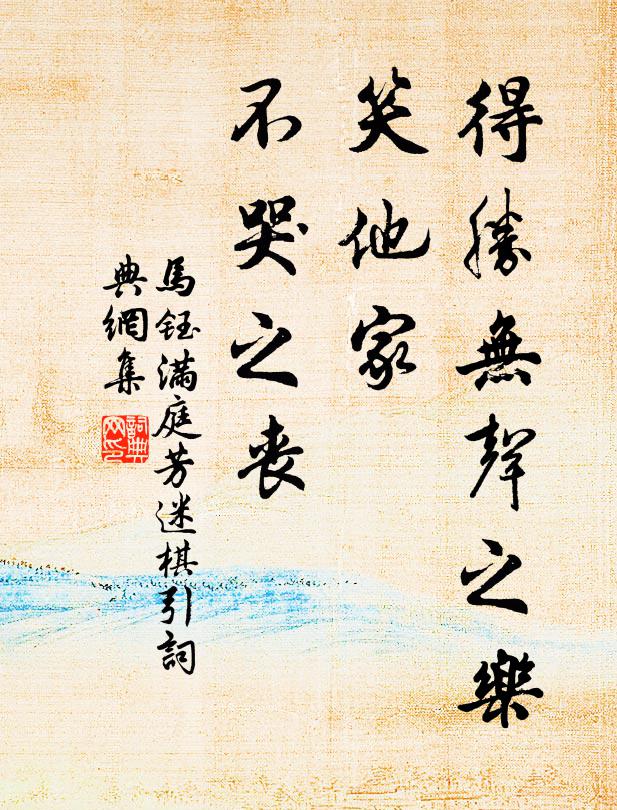 得勝無聲之樂
笑他家
不哭之喪
馬鈺滿庭芳迷棋引詞
典網集
詞典
网印